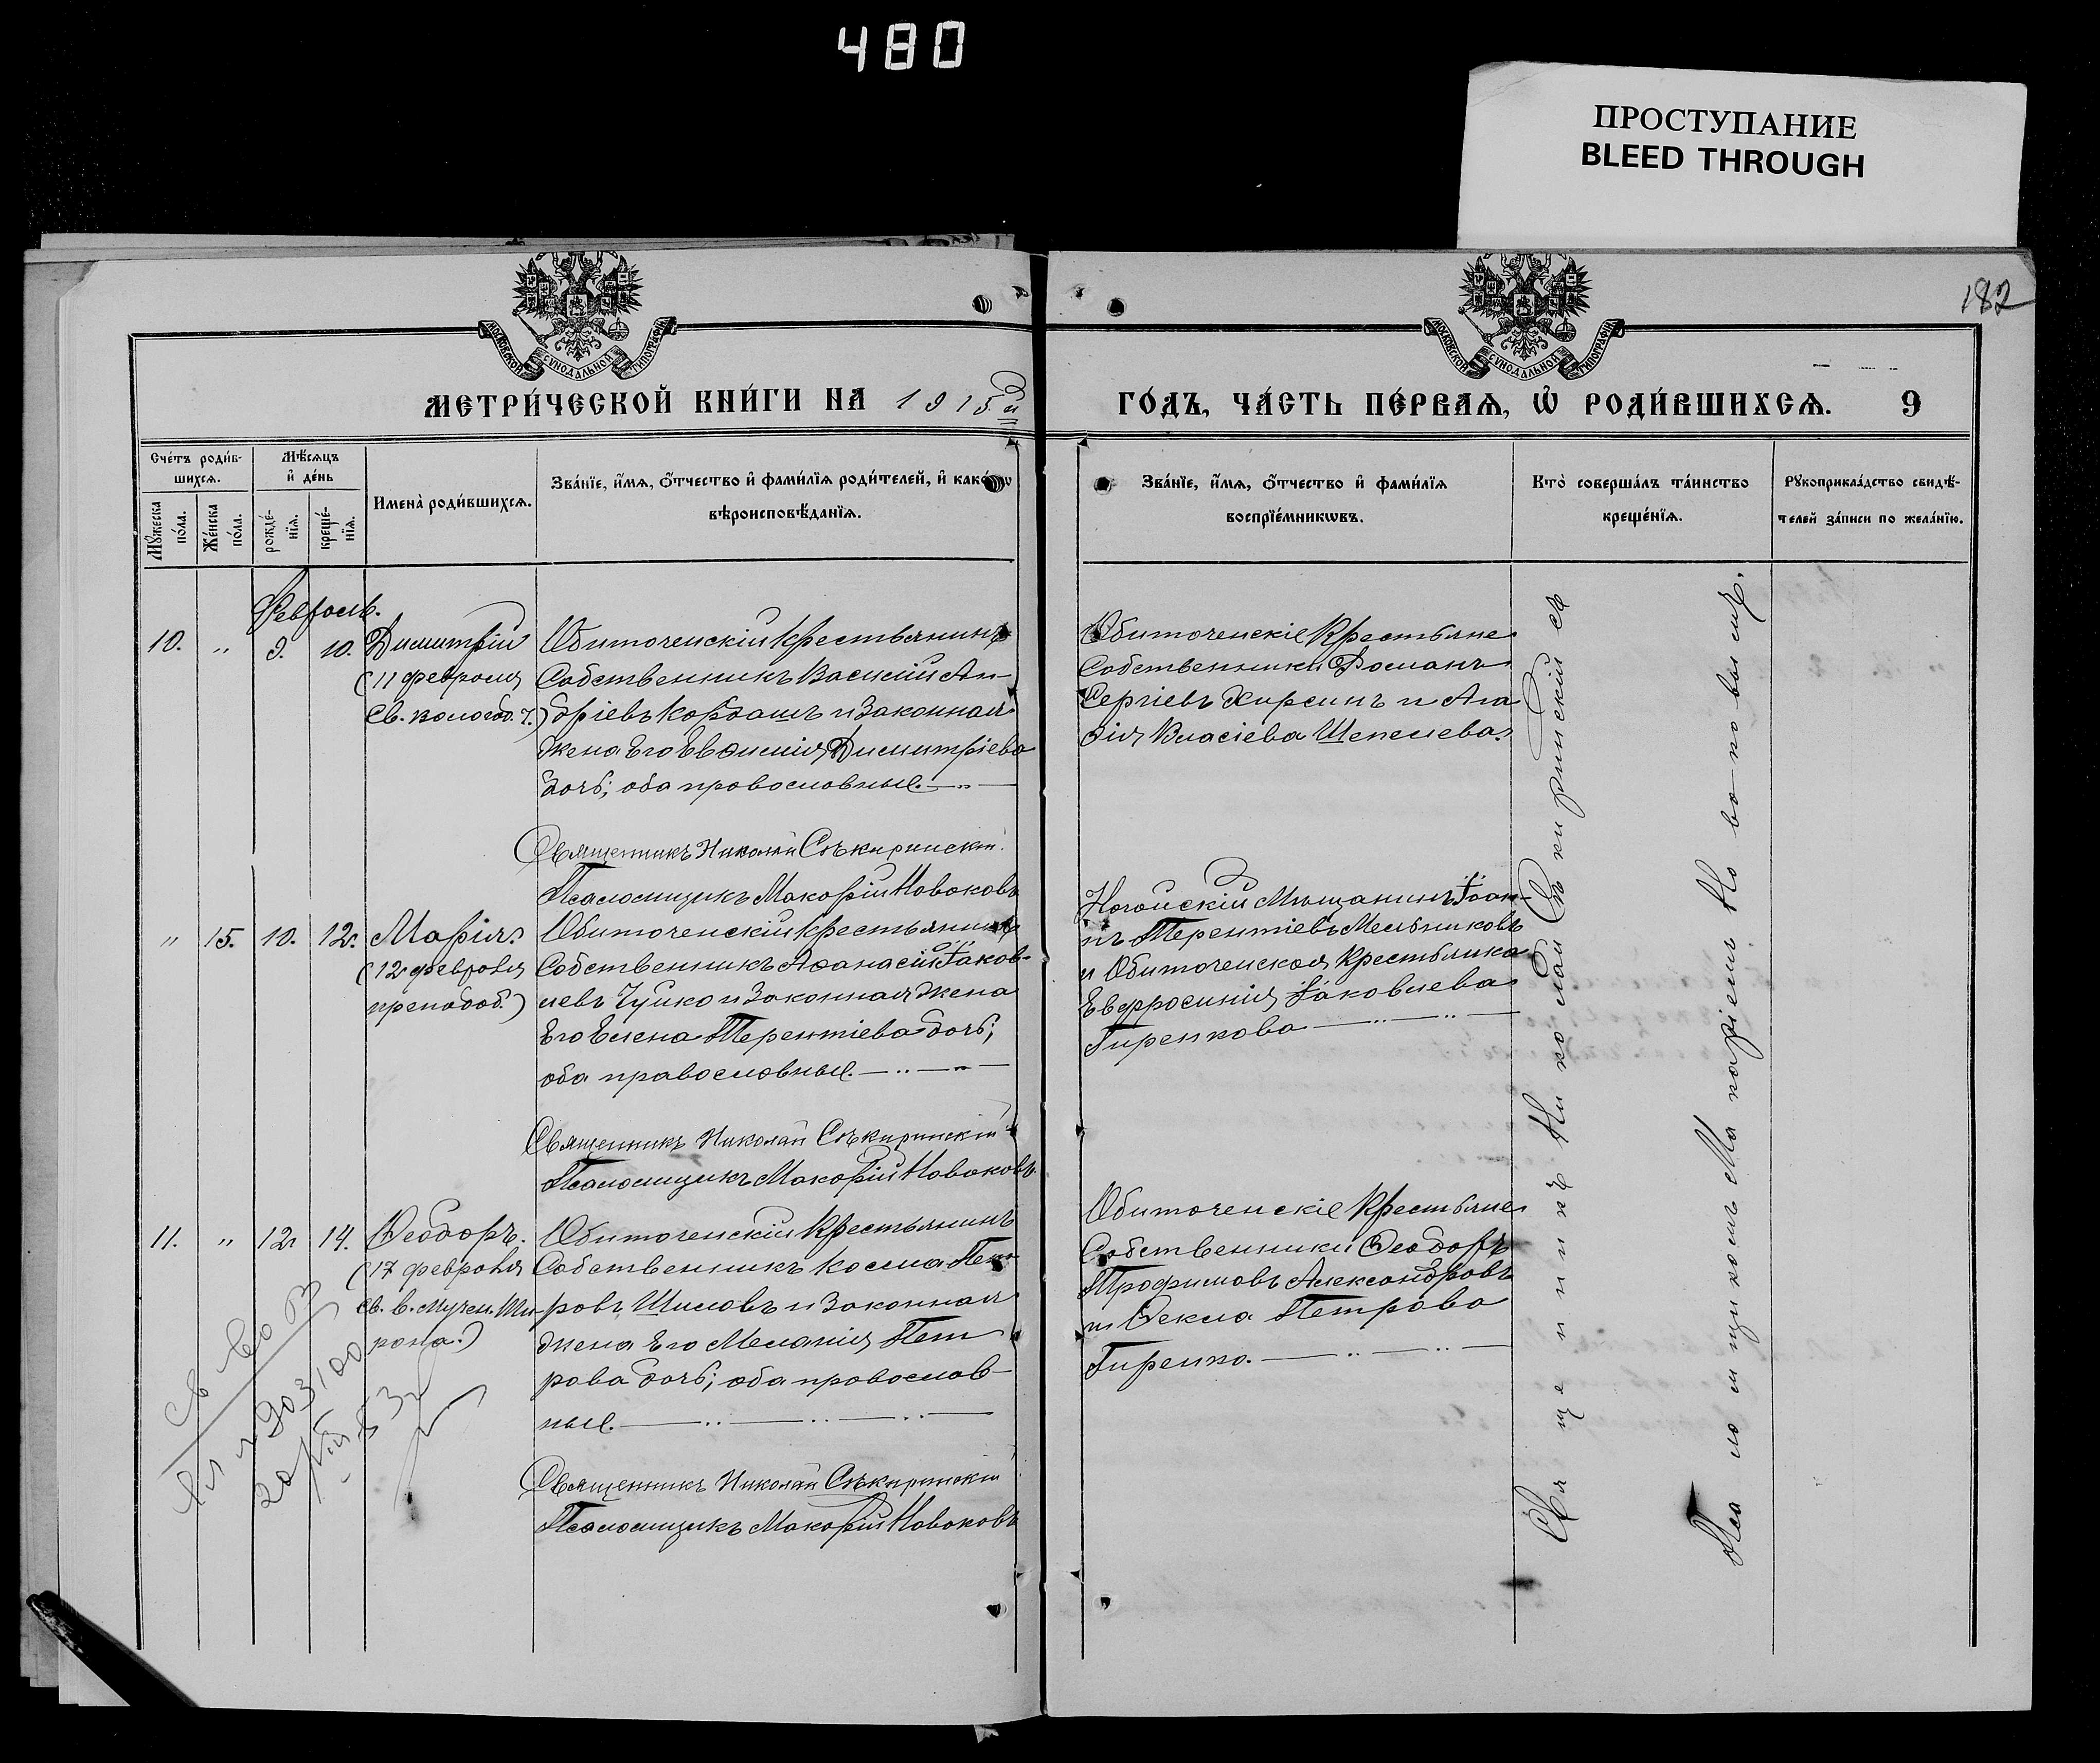 480
ПРОСТУПАНИЕ
BLEED THROUGH
182
МОСКОВСКОЙ СѴНОДАЛЬНОЙ ТИПОГРАФІИ
МОСКОВСКОЙ СѴНОДАЛЬНОЙ ТИПОГРАФІИ
МЕТРИ́ЧЕСКОЙ КНИ́ГИ НА 1915й
ГО́ДЪ, ЧА́СТЬ ПЕ́РВАѦ, Ѡ҆ РОДИ́ВШИХСѦ. 9
Сче́тъ роди́в-
шихсѧ.
Мꙋ́жеска по́ла.
Же́нска по́ла.
Мѣ́сѧцъ
и҆ де́нь
рожде́-
нїѧ.
креще́-
нїѧ.
Имена̀ роди́вшихсѧ.
Зва́нїе, и҆́мѧ, ѻ҆́тчество и҆ фами́лїѧ роди́телей, и҆ како́гѡ
вѣроисповѣ́данїѧ.
Зва́нїе, и҆́мѧ, ѻ҆́тчество и҆ фами́лїѧ
воспрїе́мникѡвъ.
Кто̀ соверша́лъ та́инство
креще́нїѧ.
Рꙋкоприкла́дство свидѣ́-
телей за́писи по жела́нїю.
Февраль.
10. " 9. 10. Димитрій
(11 февраля
св. вологод. ч.)
Обиточенскій крестьянинъ
Собственникъ Василій Ан-
дріевъ Кордашъ и законная
жена его Евѳимія Димитріева
дочь; оба православные.
Священникъ Николай Сѣкиринскій
Псаломщикъ Макарій Новаковъ
Обиточенскіе крестьяне
собственники Романъ
Сергіевъ Хирсинъ и Ага
ѳія Власіева Шепелева.
" 15. 10. 12. Марія.
(12 февраля
преподоб.)
Обиточенскій крестьянинъ
Собственникъ Аѳанасій Іаков-
левъ Чуйко и законная жена
его Елена Терентіева дочь;
оба православные.
Священникъ Николай Сѣкиринскій
Псаломщикъ Макарій Новаковъ
Ногайскій Мѣщанинъ Іоан-
нъ Терентіевъ Мельниковъ
и Обиточенская крестьянка
Евфросинія Іаковлева
Гиренкова
11. " 12. 14. Ѳеодоръ.
(17 февраля
св. в. мучен. Ти-
рона.)
Обиточенскій крестьянинъ
Собственникъ Косма Пет
ровъ Шиловъ и законная
жена его Меланія Пет
рова дочь; оба православ-
ные.
Священникъ Николай Сѣкиринскій
Псаломщикъ Макарій Новаковъ
Обиточенскіе крестьяне
Собственники Ѳеодоръ
Трофимовъ Александровъ
и Ѳекла Петрова
Гиренко.
Священникъ Николай Сѣкиринскій съ
Псаломщикомъ Макаріемъ Новаковымъ.